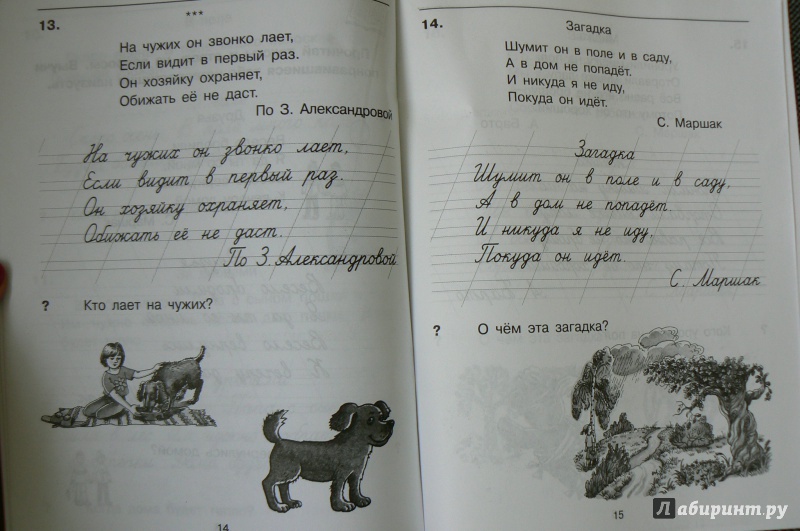 13.
***
На чужих он звонко лает,
Если видит в первый раз.
Он хозяйку охраняет,
Обижать её не даст.
По З. Александровой
На чужих он звонко лает,
Если видит в первый раз.
Он хозяйку охраняет,
Обижать её не даст.
По З. Александровой
? Кто лает на чужих?
14
14.
Загадка
Шумит он в поле и в саду,
А в дом не попадёт.
И никуда я не иду,
Покуда он идёт.
С. Маршак
Загадка
Шумит он в поле и в саду,
А в дом не попадёт.
И никуда я не иду,
Покуда он идёт.
С. Маршак
? О чём эта загадка?
15
Лабиринт.ру